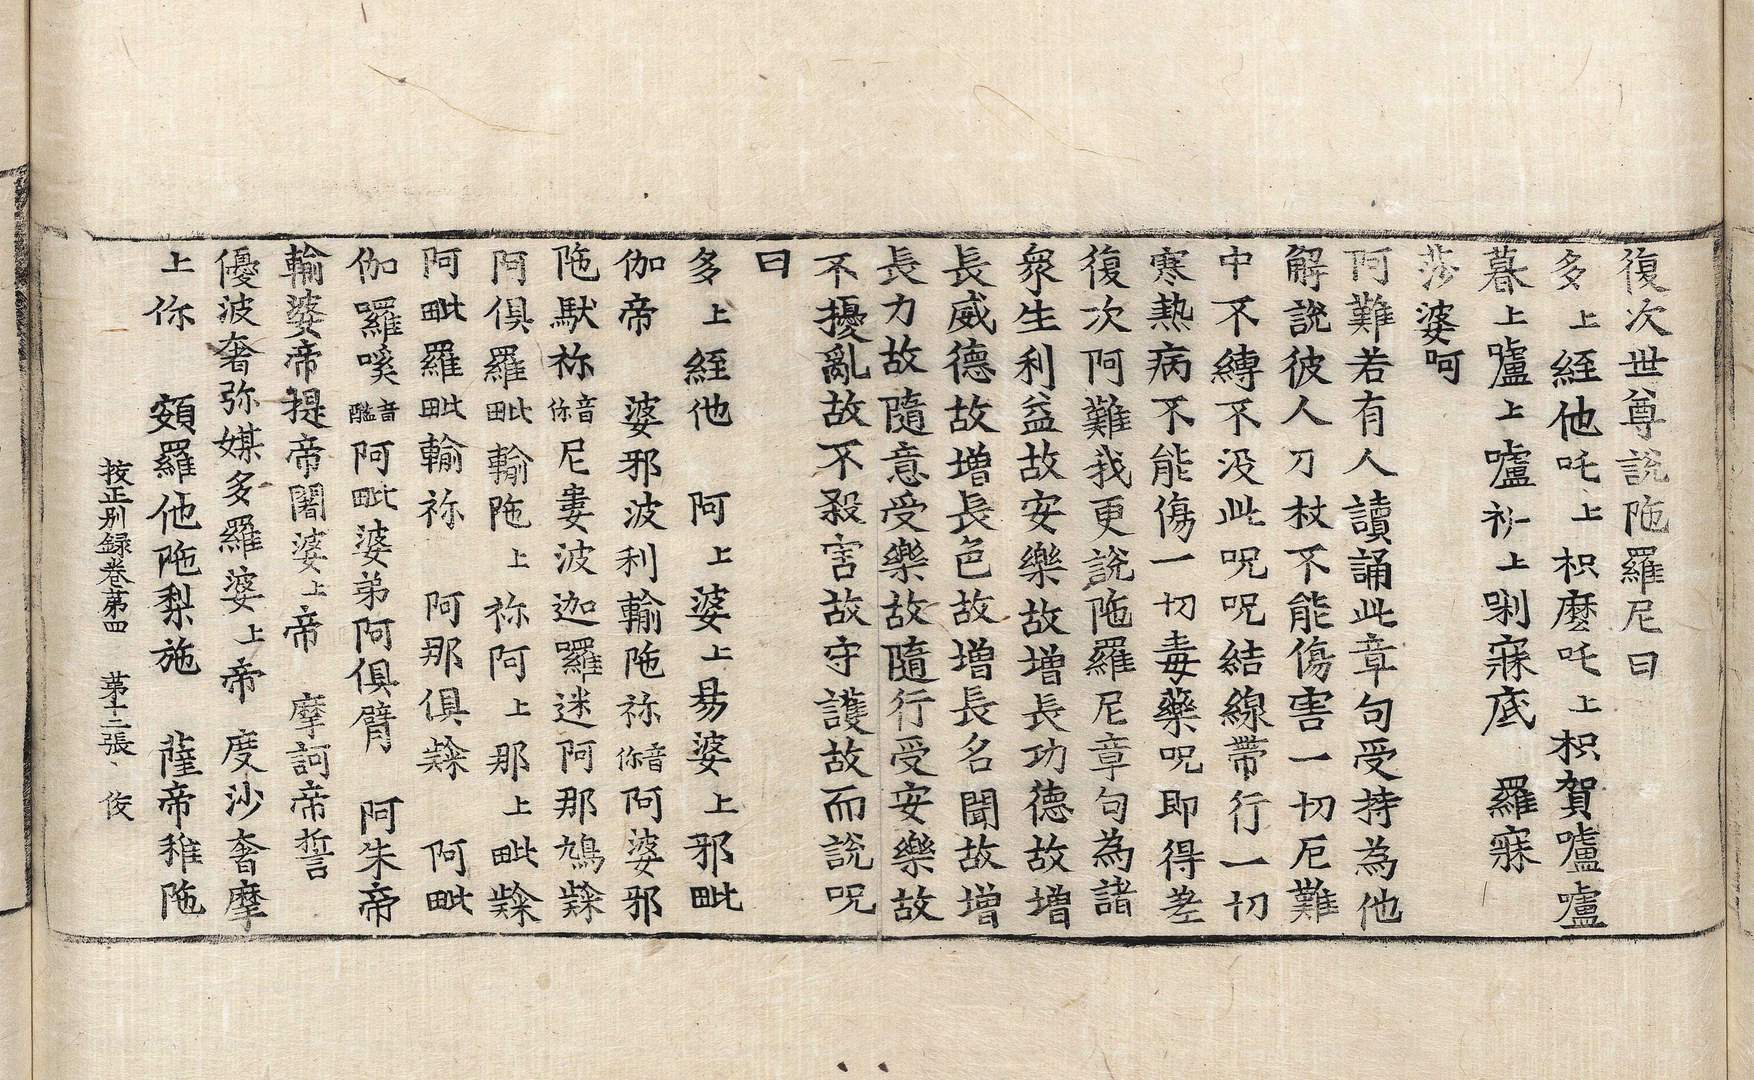 復次世尊說陁羅尼曰
多上絰他吒上枳麽吒上枳賀嚧嚧
暮上嚧上嚧祄上唎寐底　羅寐
莎婆呵
阿難若有人讀誦此章句受持為他
解說彼人刀杖不能傷害一切厄難
中不縛不没此呪呪結線帶行一切
寒熱病不能傷一切毒藥呪即得差
復次阿難我更說陁羅尼章句為諸
衆生利益故安樂故增長功德故增
長威德故增長色故增長名聞故增
長力故隨意受樂故隨行受安樂故
不擾亂故不殺害故守護故而說呪
曰
多上絰他　阿上婆上易婆上邪毗
伽帝　婆邪波利輸陁祢音你阿婆邪
陁馱祢音你尼婁波迦囉迷阿那鳩𣫍
阿俱羅毗輸陁上祢阿上那上毗𣫍
阿毗羅毗輸祢　阿那俱𣫍　阿毗
伽囉嗘音醯阿毗婆弟阿俱臂　阿朱帝
輸婆帝提帝闍婆上帝　摩訶帝誓
優波奢弥媒多羅婆上帝　度沙奢摩
上你　頞羅他陁梨施　薩帝稚陁
挍正別録卷第四　第十二張　俊